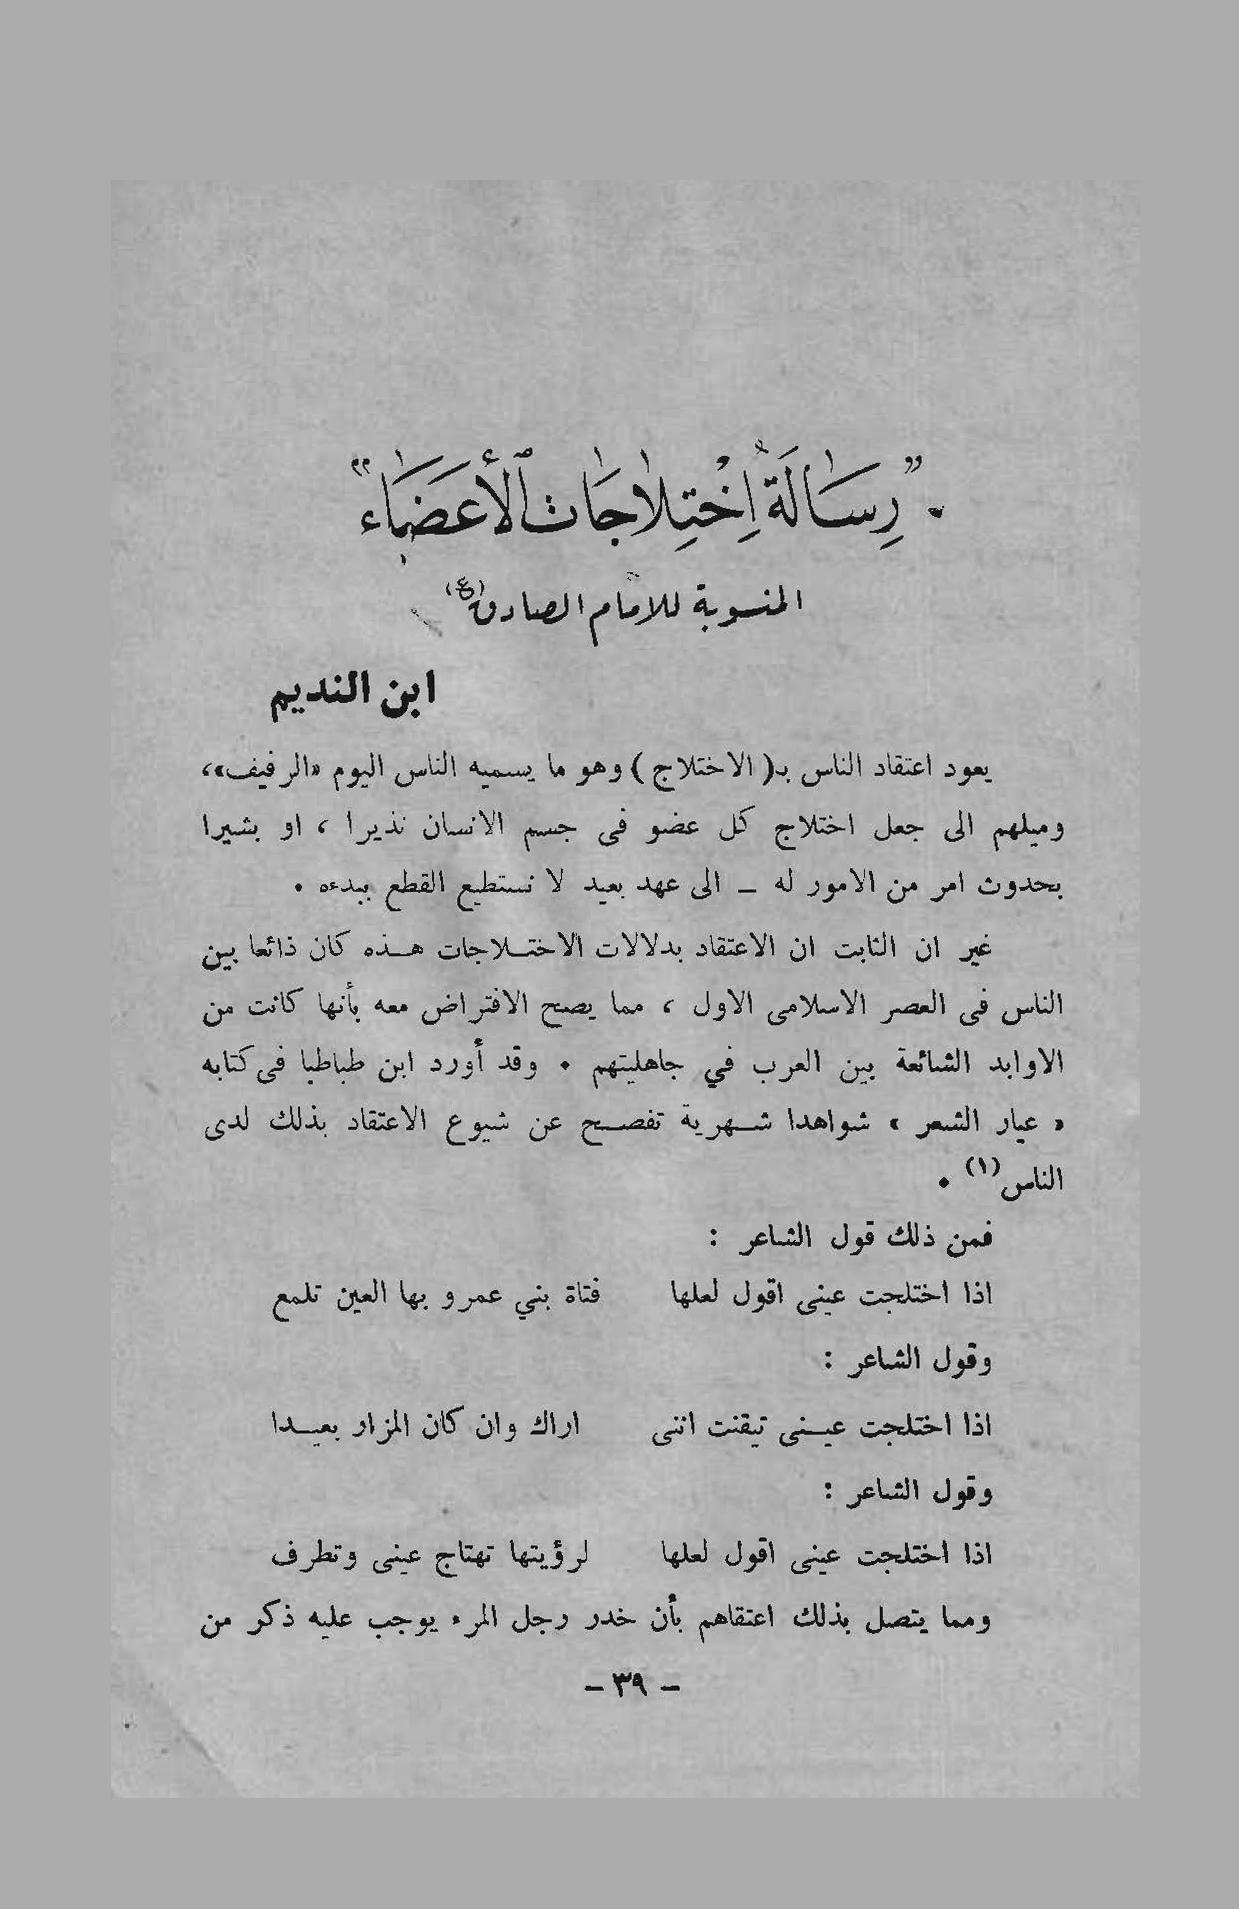 ”رِسَالَةُ اِخْتِلاجَاتِ الأَعضَاء“
المنسوبة للامام الصادق (ع)
ابن النديم
يعود اعتقاد الناس بـ( الاختلاج ) وهو ما يسميه الناس اليوم «الرفيف»،
وميلهم الى جعل اختلاج كل عضو فى جسم الانسان نذيرا ، او بشيرا
بحدوث امر من الامور له – الى عهد بعيد لا نستطيع القطع ببدءه .
غير ان الثابت ان الاعتقاد بدلالات الاختـلاجات هـذه كان ذائعا بين
الناس فى العصر الاسلامى الاول ، مما يصح الافتراض معه بأنها كانت من
الاوابد الشائعة بين العرب في جاهليتهم . وقد أورد ابن طباطبا فى كتابه
« عيار الشعر » شواهدا شـهرية تفصـح عن شيوع الاعتقاد بذلك لدى
الناس(١) .
فمن ذلك قول الشاعر :
اذا اختلجت عينى اقول لعلها فتاة بني عمرو بها العين تلمع
وقول الشاعر :
اذا اختلجت عيـنى تيقنت اننى اراك وان كان المزار بعيـدا
وقول الشاعر :
اذا اختلجت عينى اقول لعلها لرؤيتها تهتاج عينى وتطرف
ومما يتصل بذلك اعتقاهم بأن خدر رجل المرء يوجب عليه ذكر من
– ٣٩ –